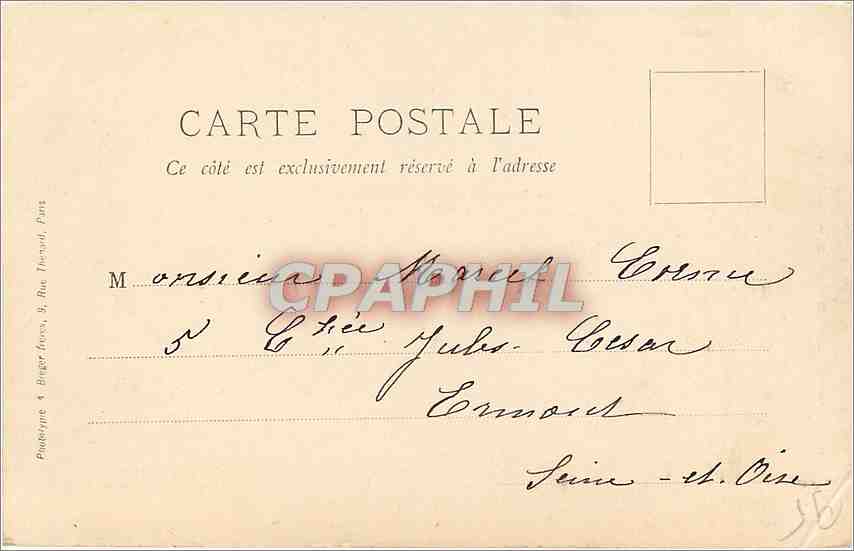 CARTE POSTALE
Ce côté est exclusivement réservé à l'adresse
Monsieur Marcel Cornu
5 Cssée Jules Cesar
Ermont
Seine-et-Oise
Phototypie A. Bergeret frères, 9, Rue Thénard, Paris
CPAPHIL